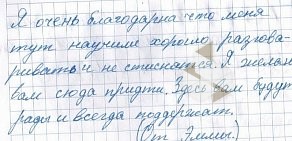 Я очень благодарна что меня
тут научили хорошо разгова-
ривать и не стискатся. Я желаю
вам сюда придти. Здесь вам будут
рады и всегда поддержат.
(От Эммы.)